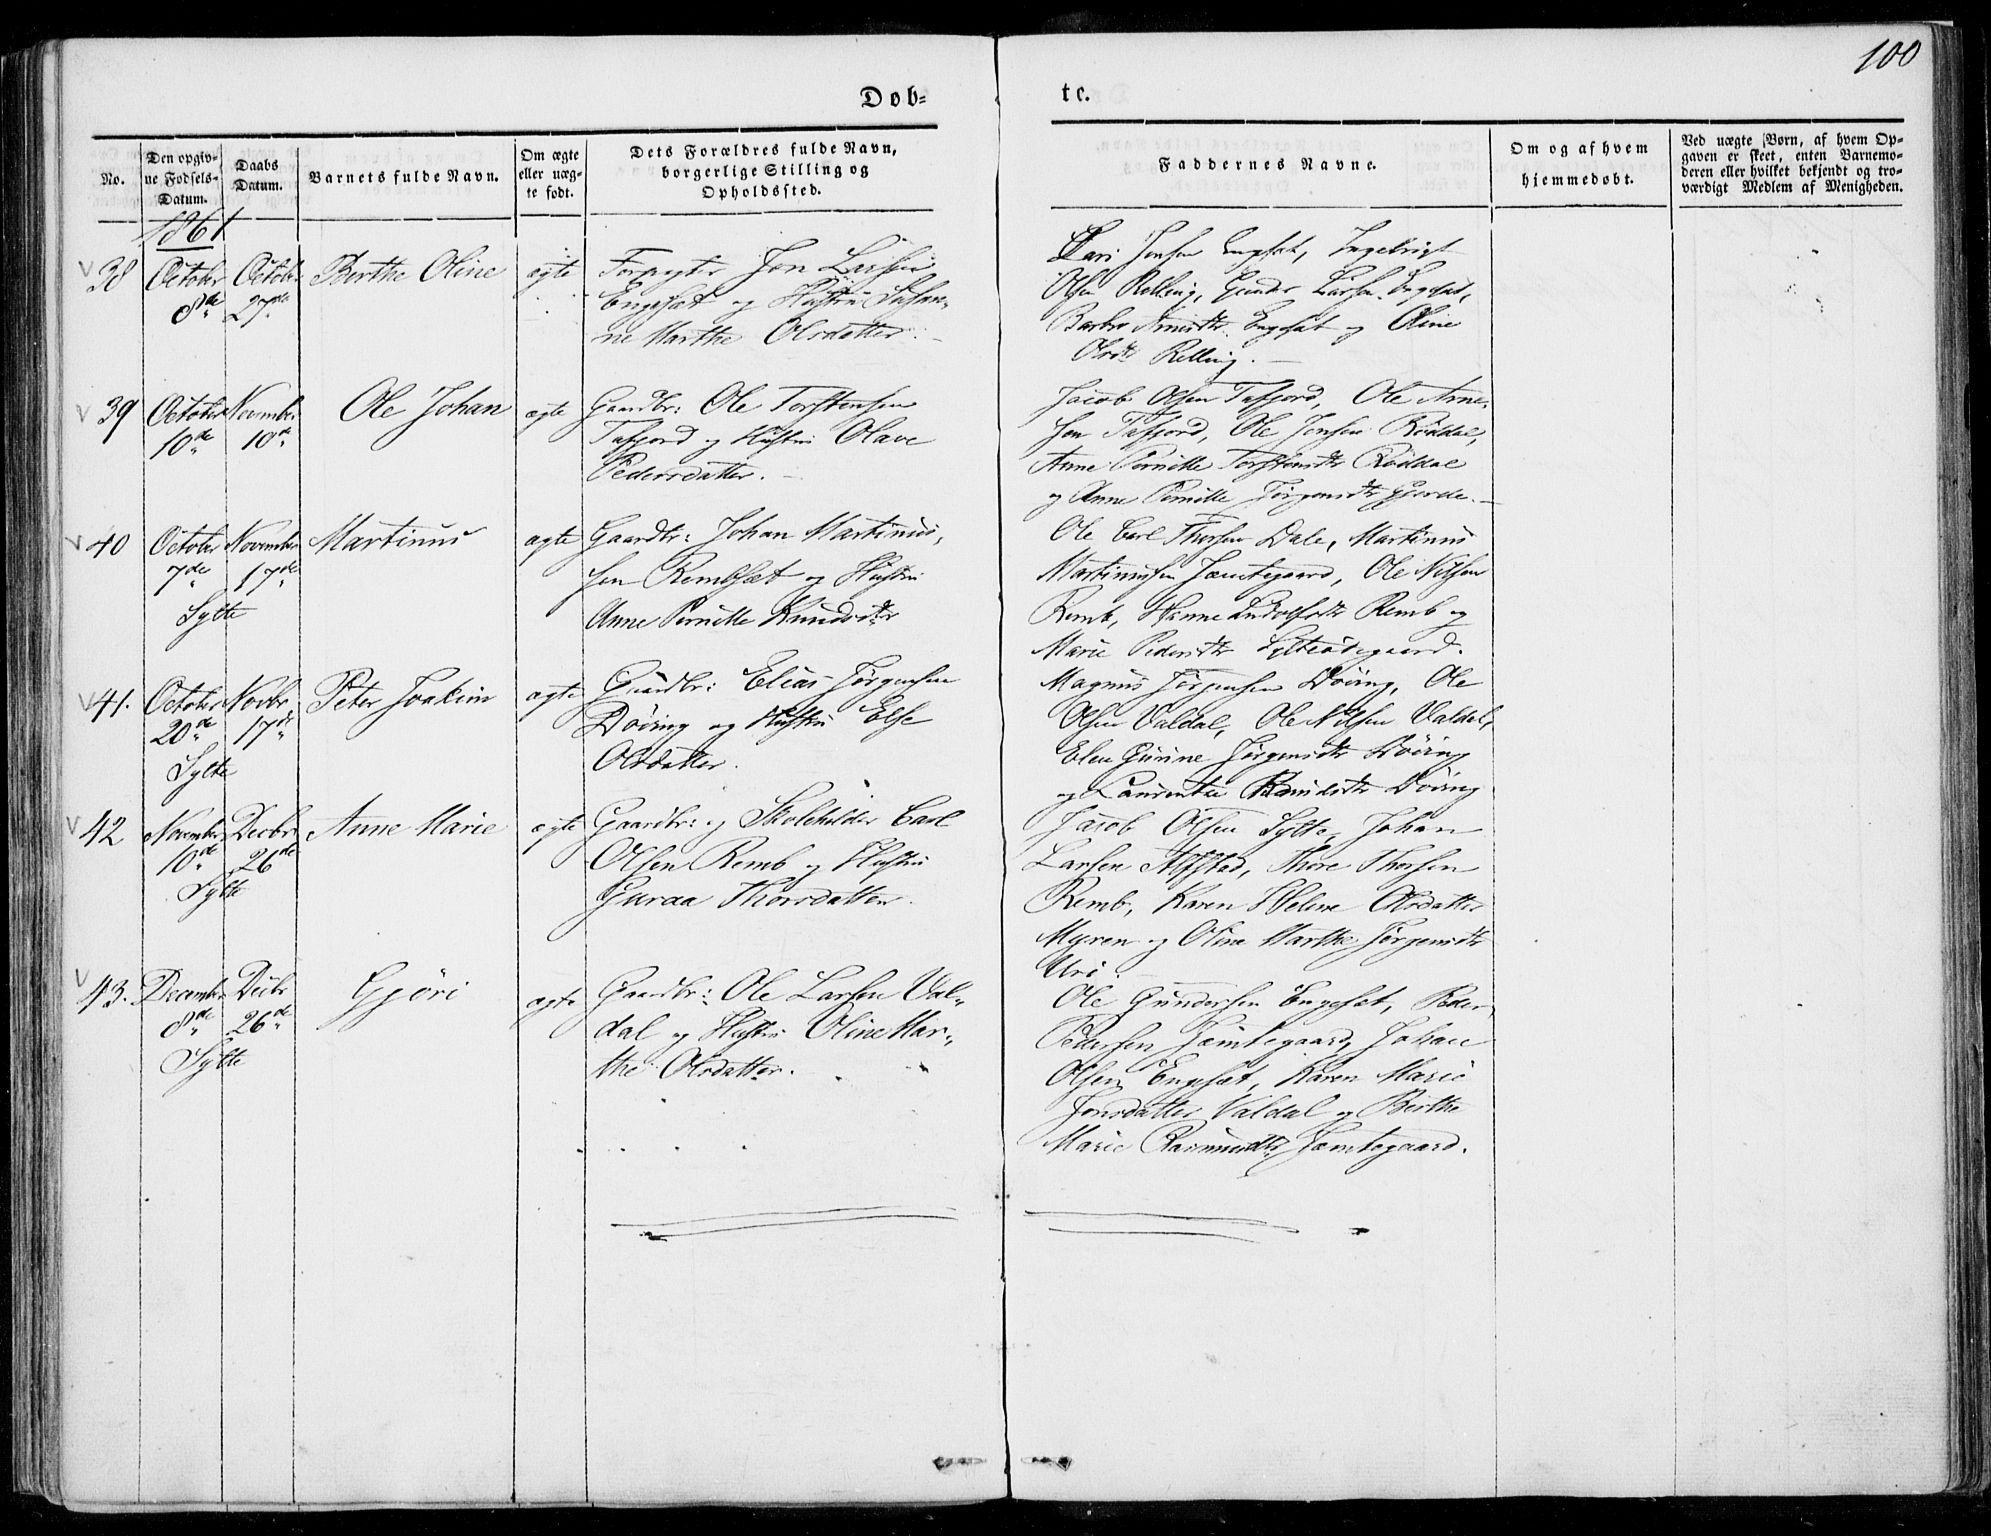 100
Dob-
te.
No.
Den opgiv-
ne Fødsels-
Datum.
Daabs
Datum.
Barnets fulde Navn.
Om ægte
eller uæg-
te født.
Dets Forældres fulde Navn,
borgerlige Stilling og
Opholdssted.
Faddernes Navne.
Om og af hvem
hjemmedøbt.
Ved uægte Børn, af hvem Op-
gaven er skeet, enten Barnemo-
deren eller hvilket bekjendt og tro-
værdigt Medlem af Menigheden.
1861
38
October
8de
October
27de
Berthe Oline
ægte
Forpagter Jon Larsen
Engeset og Hustru Susan-
ne Marthe Olsdatter.
Lars Jensen Engeset, Ingebrigt
Olsen Relling, Gunder Larsen Engeset,
Barbro Arnesdtr. Engeset og Oline
Olsdtr Relling.
39
October
10de
November
10de
Ole Johan
ægte
Gaardbr: Ole Torstensen
Tafjord og Hustru Olave
Pedersdatter.
Jacob Olsen Tafjord, Ole Arne-
sen Tafjord, Ole Jensen Røddal,
Anne Pernille Torstensdtr Røddal
og Anne Pernille Jørgensdtr Gjerde.
40
October
7de
Sylte
November
17de
Martinus
ægte
Gaardbr: Johan Martinus-
sen Rembset og Hustru
Anne Pernille Knudsdtr
Ole Carl Thorsen Dale, Martinus
Martinussen Jæmtegaard, Ole Nilsen
Remb, Hanne Ludolfsdtr Remb og
Marie Pedersdtr Sylteødegaard.
41.
October
20de
Sylte
Novbr
17de
Peter Joakim
ægte
Gaardbr: Elias Jørgensen
Døving og Hustru Else
Olsdatter.
Magnus Jørgensen Døving, Ole
Olsen Valdal, Ole Nilsen Valdal,
Elen Gurine Jørgensdtr Døving
og Laurentse Knudsdtr Døving
42
November
10de
Sylte
Decbr
26de
Anne Marie
ægte
Gaardbr: og Skoleholder Carl
Olsen Remb og Hustru
Guraa Thorsdatter.
Jacob Olsen Sylte, Johan
Larsen Alstad, Thore Thorsen
Remb, Karen Helene Olsdatter
Myren og Oline Marthe Jørgensdtr
Uri.
43.
December
8de
Sylte
Decbr
26de
Gjøri
ægte
Gaardbr: Ole Larsen Val-
dal og Hustru Oline Mar-
the Olsdatter.
Ole Gundersen Engeset, Peder
Pedersen Jæmtegaard, Johan
Olsen Engeset, Karen Marie
Jonsdatter Valdal og Berthe
Marie Rasmusdtr Jæmtegaard.